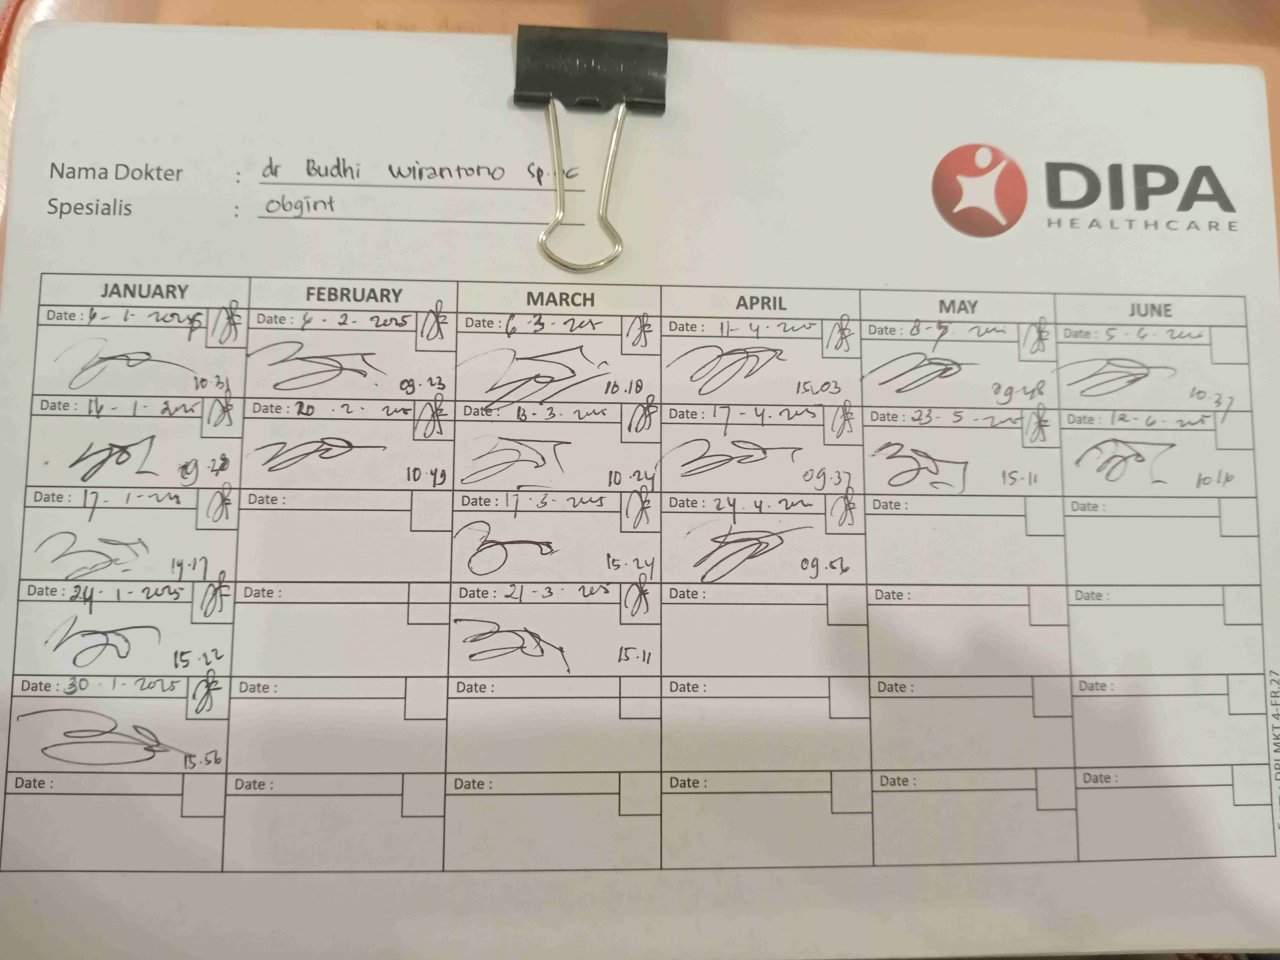 Nama Dokter : dr Budhi Wirantono
Spesialis : Obgint
DIPA
HEALTHCARE
JANUARY FEBRUARY MARCH APRIL MAY JUNE
Date : 6-1-2025 Date : 6-2-2025 Date : 6-3-2025 Date : 11-4-2025 Date : 8-5-2025 Date : 5-6-2025
10.31 09.23 10.18 15.03 09.48 10.37
Date : 16-1-2025 Date : 20-2-2025 Date : 13-3-2025 Date : 17-4-2025 Date : 23-5-2025 Date : 12-6-2025
09.28 10.49 10.24 09.37 15.11
Date : 17-1-2025 Date : Date : 17-3-2025 Date : 24.4.2025 Date : Date :
14.17 15.24 09.56
Date : 24-1-2025 Date : Date : 21-3-2025 Date : Date : Date :
15.22 15.11
Date : 30-1-2025 Date : Date : Date : Date : Date :
15.56
Date : Date : Date : Date : Date : Date :